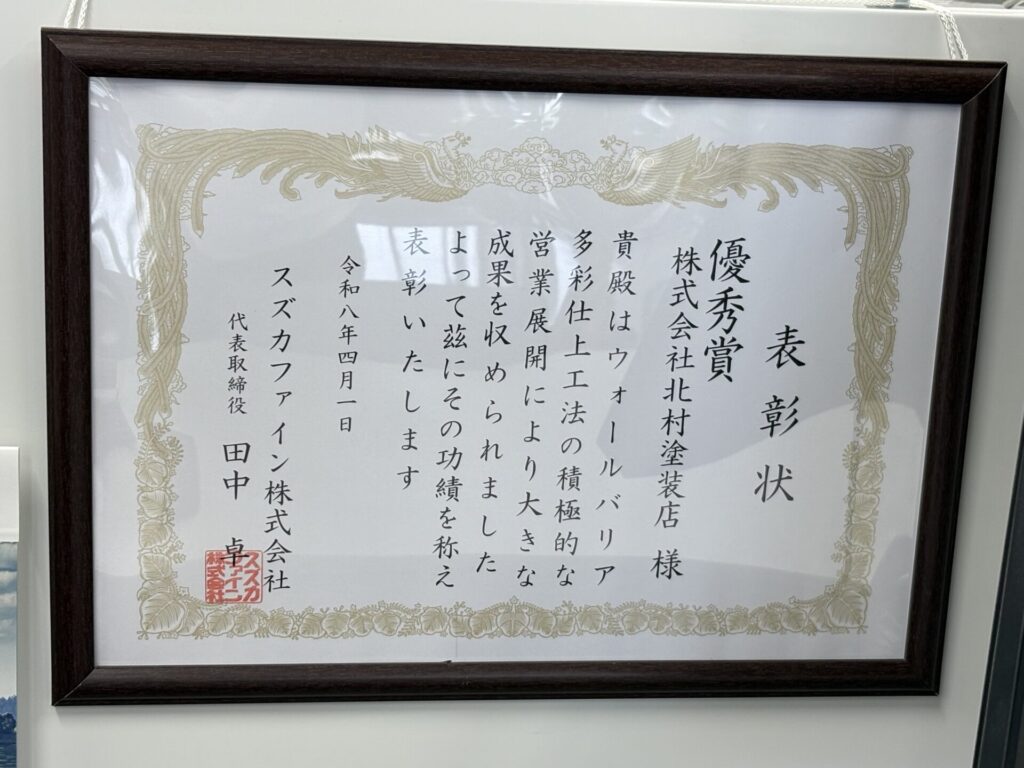 表彰状
優秀賞
株式会社北村塗装店 様
貴殿はウォールバリア
多彩仕上工法の積極的な
営業展開により大きな
成果を収められました
よって茲にその功績を称え
表彰いたします
令和八年四月一日
スズカファイン株式会社
代表取締役 田中 卓
スズカ
ファイン
株式会社